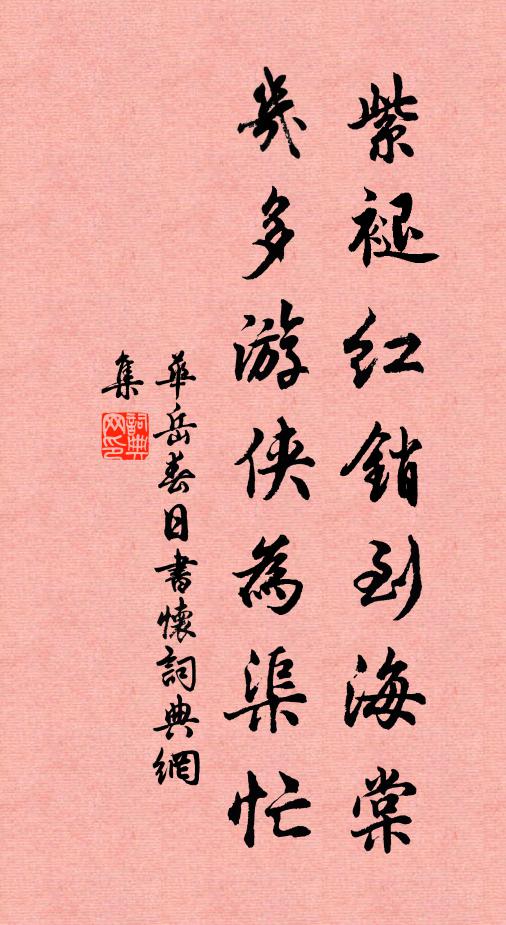 紫褪红銷到海棠
幾多游侠為渠忙
華岳春日書懷詞典網
集
詞典
网印